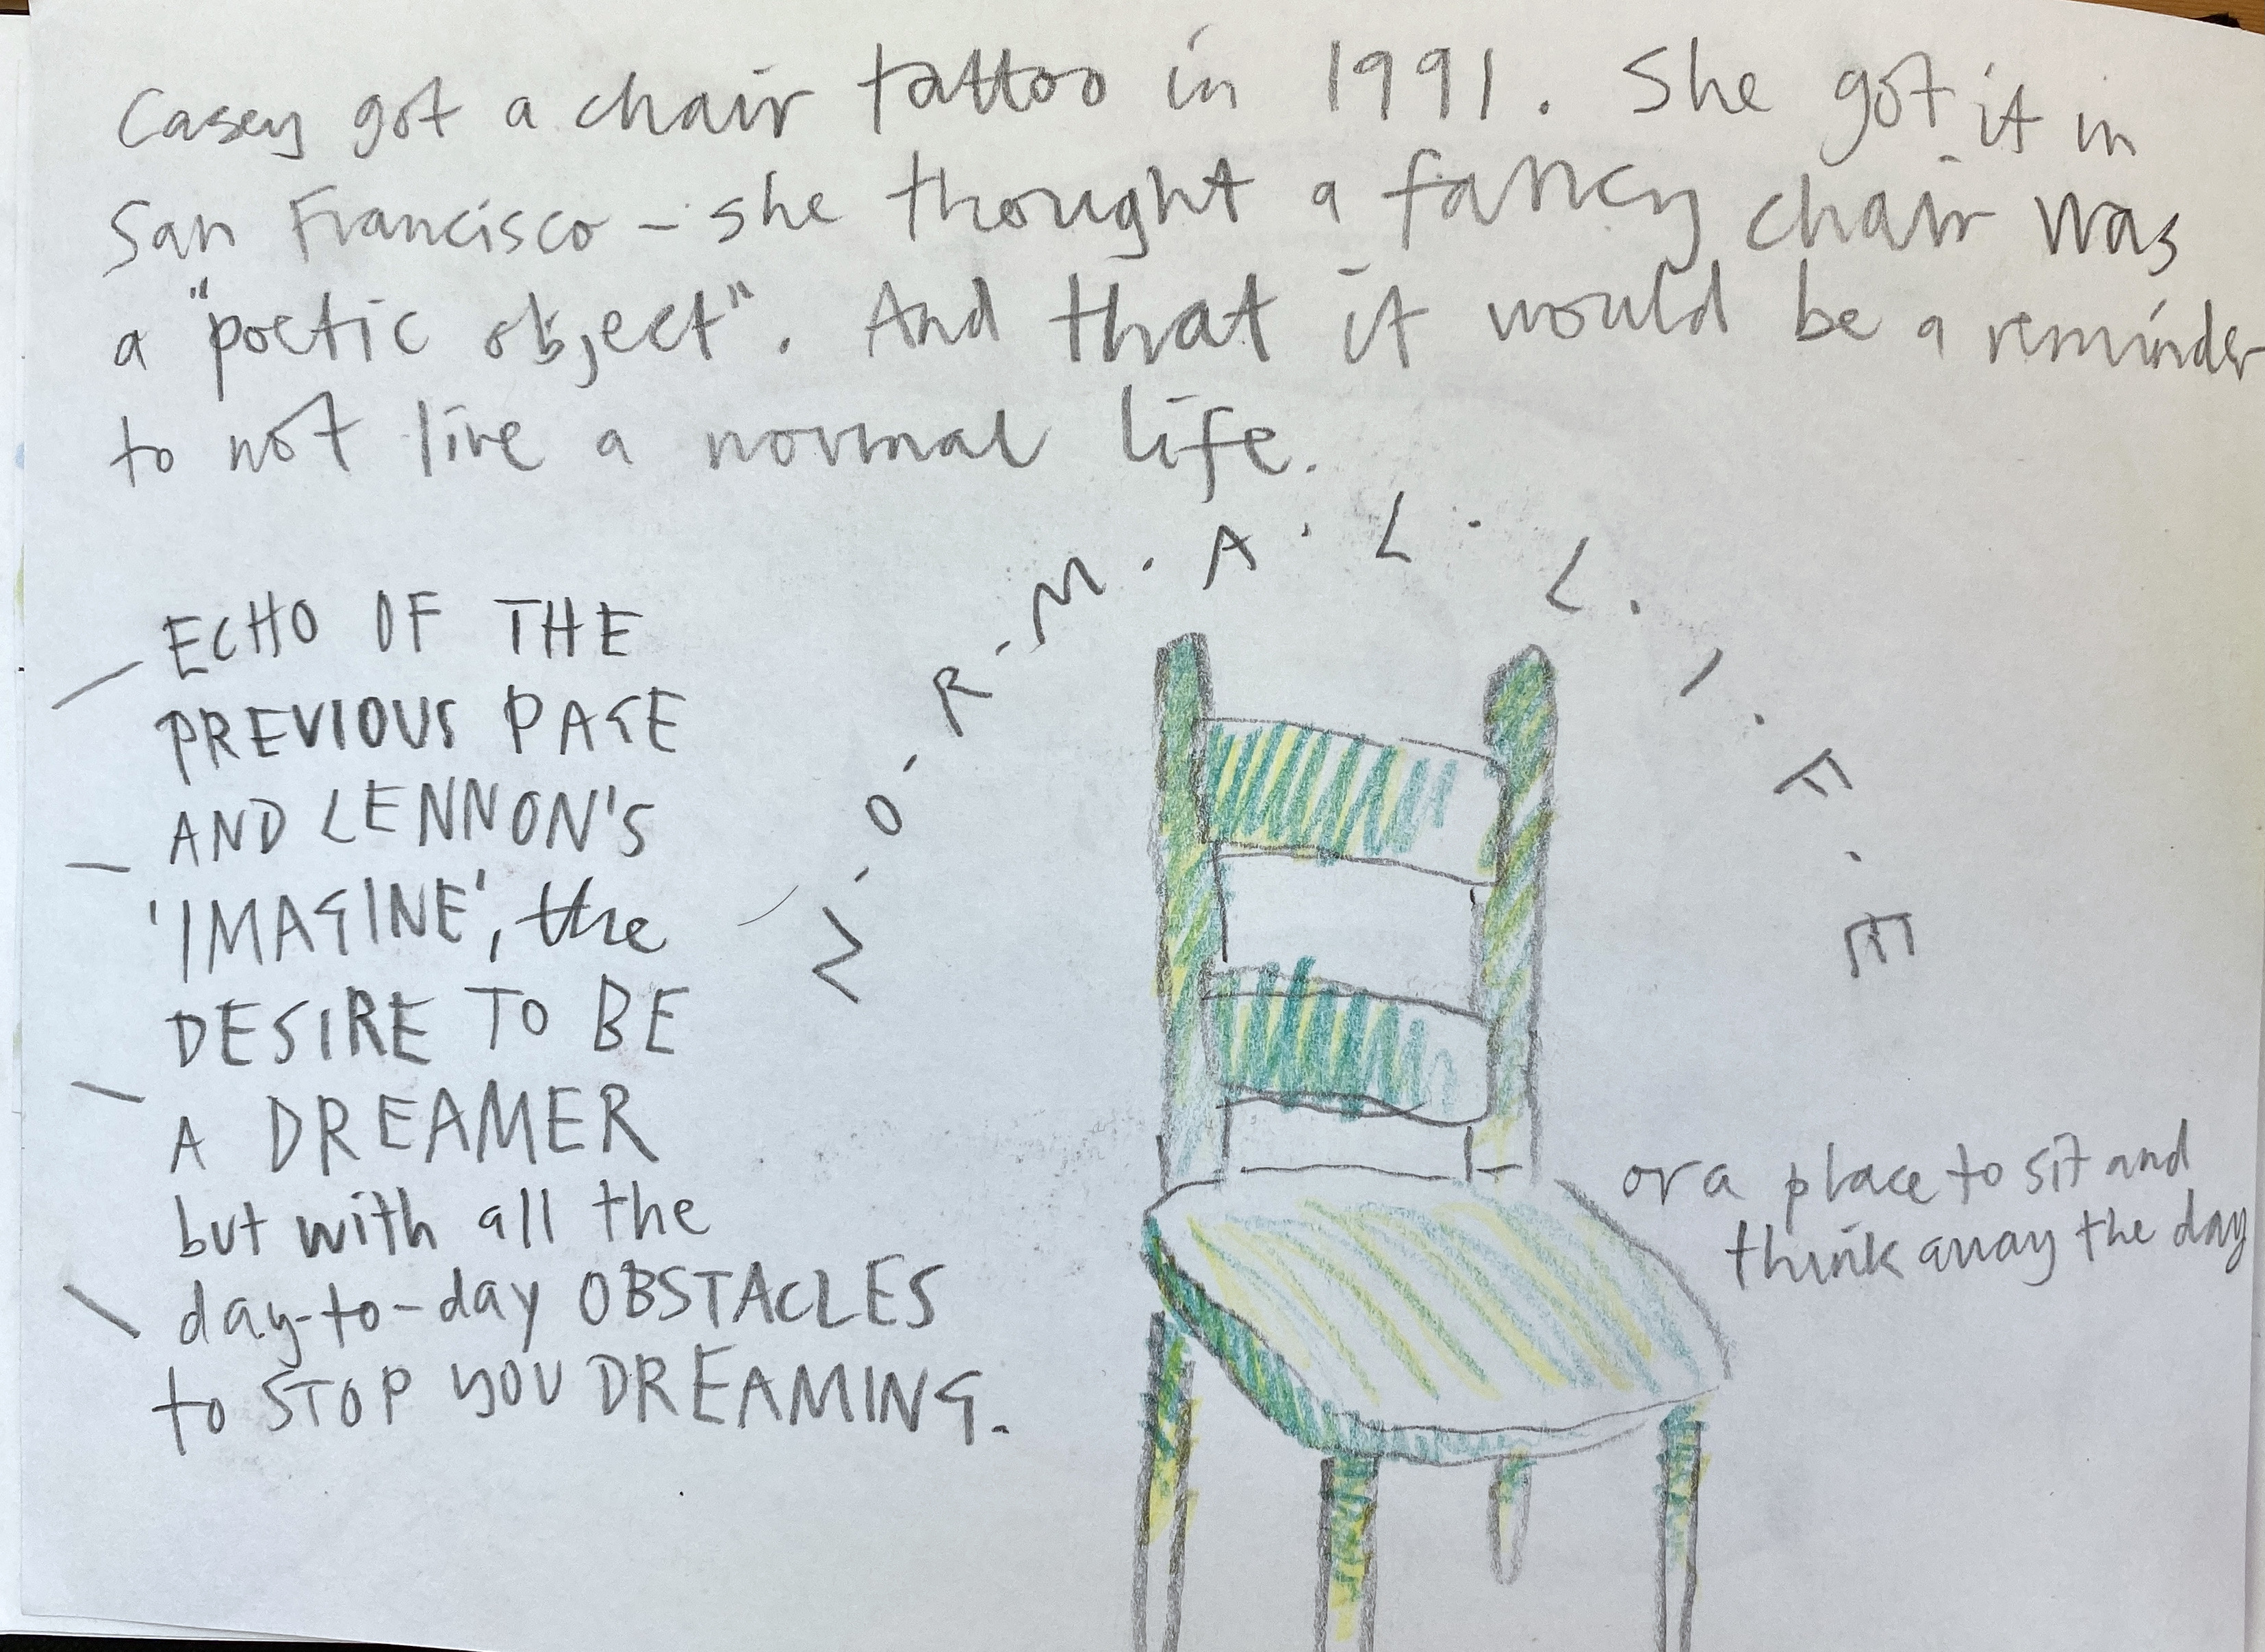 Casey got a chair tattoo in 1991. She got it in
San Francisco - she thought a fancy chair was
a "poetic object". And that it would be a reminder
to not live a normal life.
N-O-R-M.A.L.L.I.F.E
ECHO OF THE
PREVIOUS PAGE
AND LENNON'S
'IMAGINE', the
DESIRE TO BE
A DREAMER
but with all the
day-to-day OBSTACLES
to STOP YOU DREAMING.
or a place to sit and
think away the day